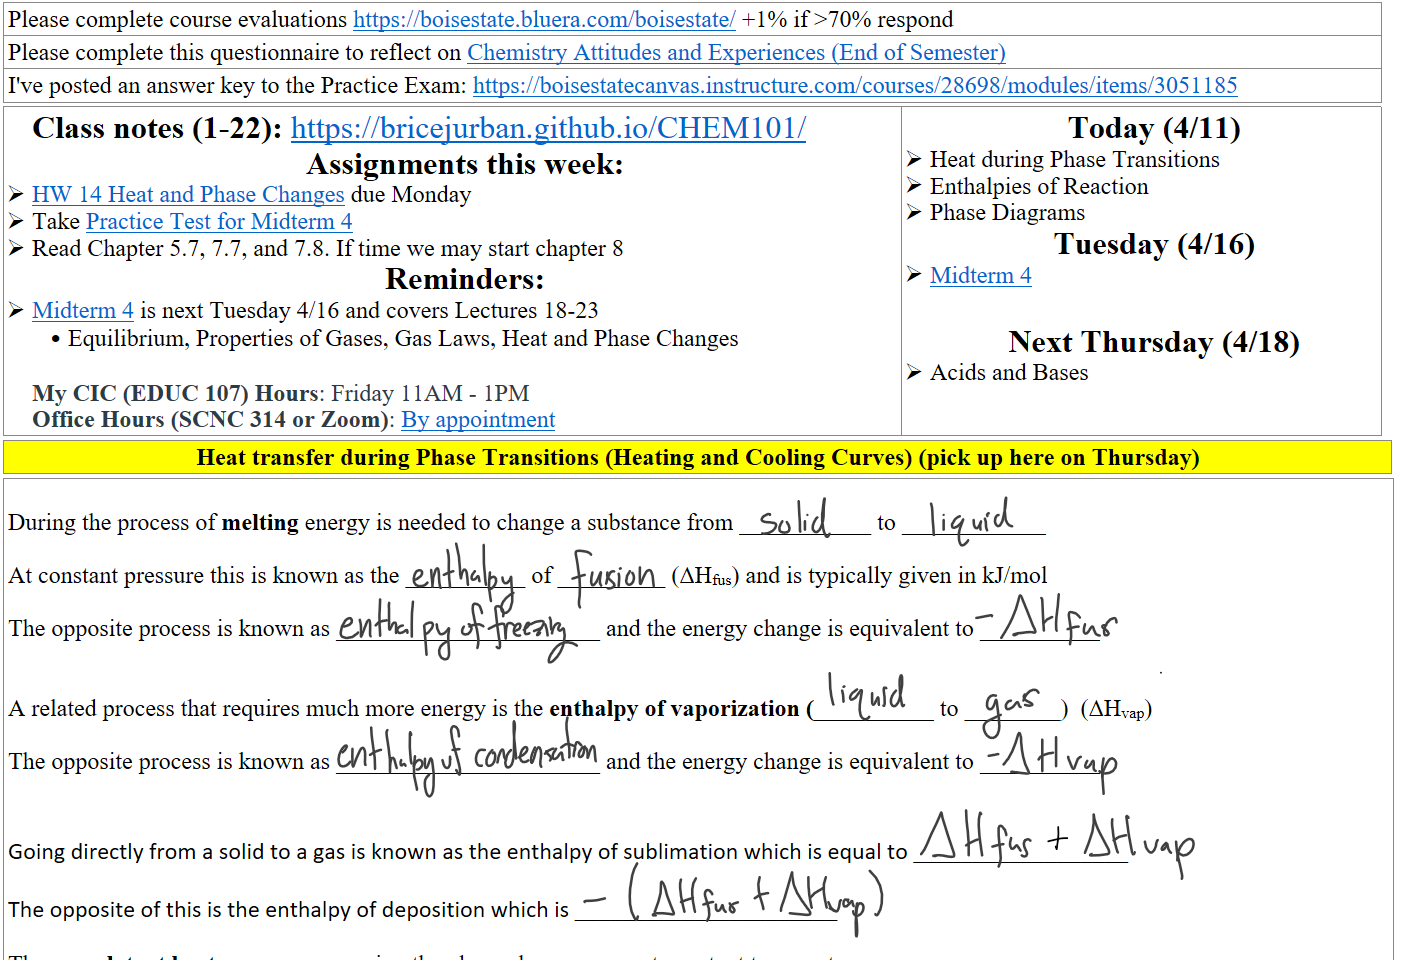 Please complete course evaluations https://boisestate.bluera.com/boisestate/ +1% if >70% respond
Please complete this questionnaire to reflect on Chemistry Attitudes and Experiences (End of Semester)
I've posted an answer key to the Practice Exam: https://boisestatecanvas.instructure.com/courses/28698/modules/items/3051185
Class notes (1-22): https://bricejurban.github.io/CHEM101/
Assignments this week:
➤ HW 14 Heat and Phase Changes due Monday
➤ Take Practice Test for Midterm 4
➤ Read Chapter 5.7, 7.7, and 7.8. If time we may start chapter 8
Reminders:
➤ Midterm 4 is next Tuesday 4/16 and covers Lectures 18-23
• Equilibrium, Properties of Gases, Gas Laws, Heat and Phase Changes
My CIC (EDUC 107) Hours: Friday 11AM - 1PM
Office Hours (SCNC 314 or Zoom): By appointment
Today (4/11)
➤ Heat during Phase Transitions
➤ Enthalpies of Reaction
➤ Phase Diagrams
Tuesday (4/16)
➤ Midterm 4
Next Thursday (4/18)
➤ Acids and Bases
Heat transfer during Phase Transitions (Heating and Cooling Curves) (pick up here on Thursday)
During the process of melting energy is needed to change a substance from solid to liquid
At constant pressure this is known as the enthalpy of fusion (ΔHfus) and is typically given in kJ/mol
The opposite process is known as enthalpy of freezing and the energy change is equivalent to -ΔHfus
A related process that requires much more energy is the enthalpy of vaporization (liquid to gas) (ΔHvap)
The opposite process is known as enthalpy of condensation and the energy change is equivalent to -ΔHvap
Going directly from a solid to a gas is known as the enthalpy of sublimation which is equal to ΔHfus + ΔHvap
The opposite of this is the enthalpy of deposition which is - (ΔHfus + ΔHvap)